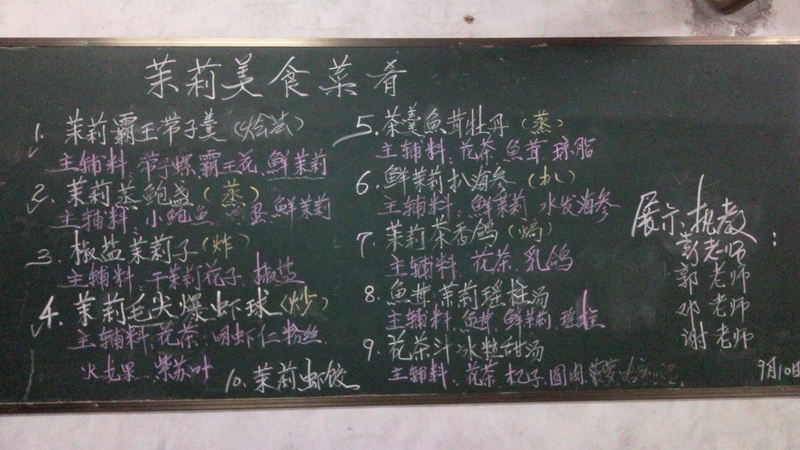 茉莉美食菜肴
1. 茉莉霸王带子羹（烩法）
主辅料：带子螺、霸王花、鲜茉莉
2. 茉莉蒸鲍盏（蒸）
主辅料：小鲍鱼 蛋 鲜茉莉
3. 椒盐茉莉子（炸）
主辅料：干茉莉花子 椒盐
4. 茉莉毛尖爆虾球（炒）
主辅料：花茶、明虾仁 粉丝
火龙果、紫苏叶
5. 茶羹魚茸牡丹（蒸）
主辅料：花茶、魚茸、琼脂
6. 鲜茉莉扒海参（扒）
主辅料：鲜茉莉、水发海参
7. 茉莉茶香鸽（焗）
主辅料：花茶、乳鸽
8. 魚茸茉莉瑶柱汤
主辅料：魚茸、鲜茉莉、瑶柱
9. 花茶汁冰粒甜汤
主辅料：花茶、杞子、圆肉、菠萝
10. 茉莉虾饺
展示、执教：
彭老师
郭老师
邓老师
谢老师
9月10日